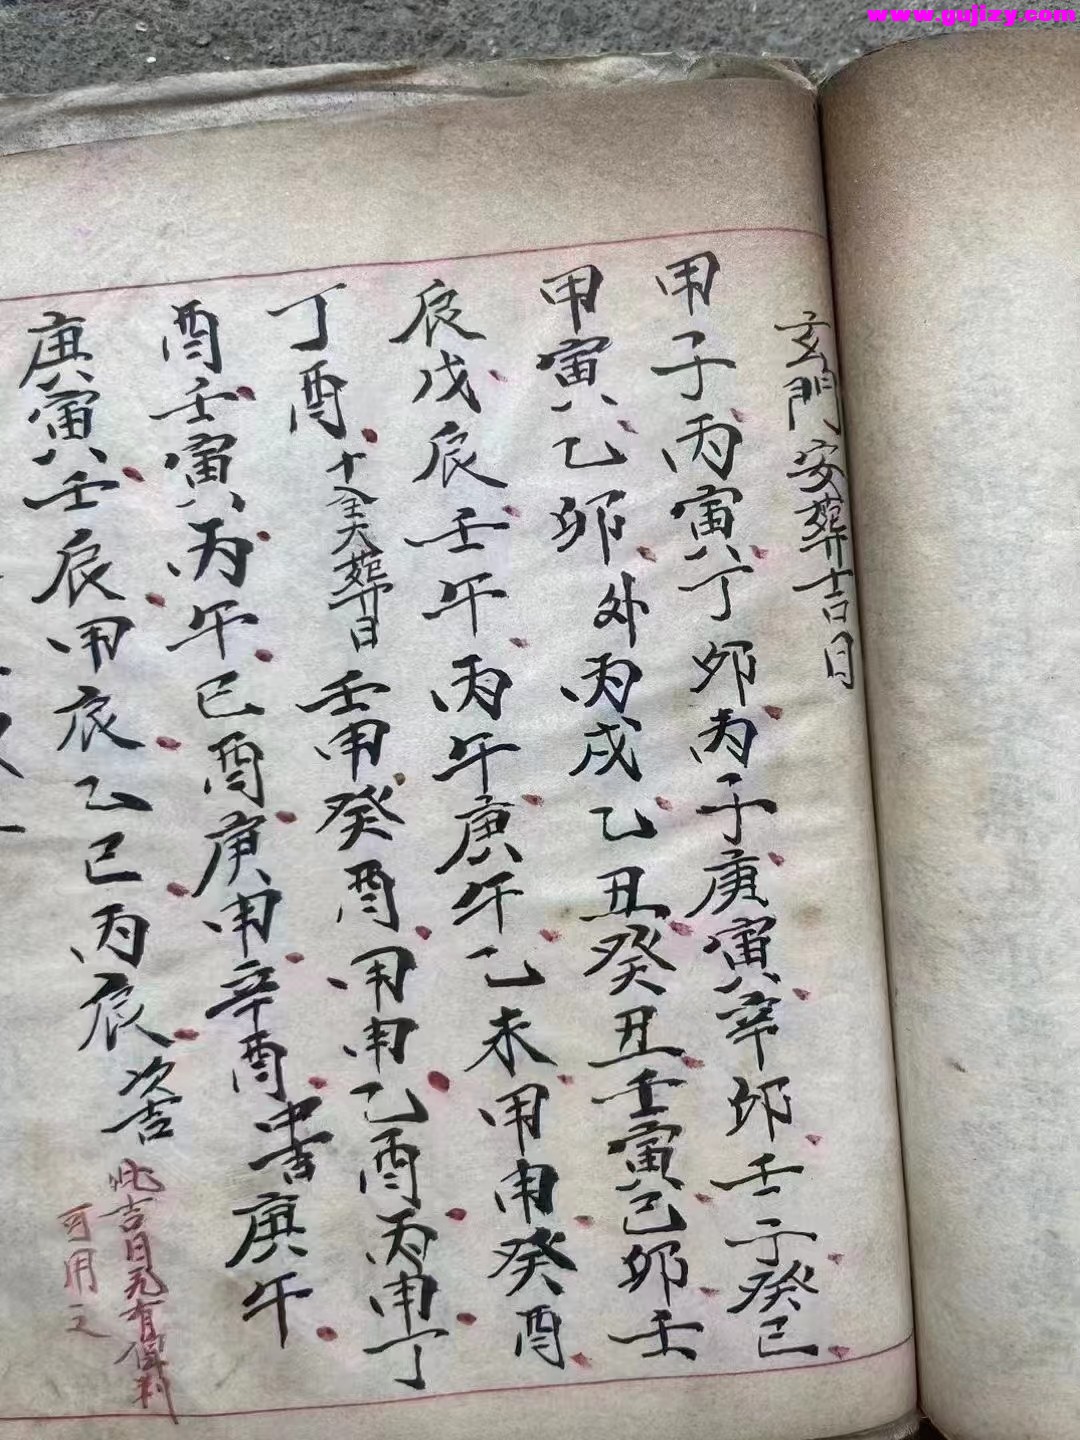 www.gujizy.com
玄門安葬吉日
甲子丙寅丁卯丙子庚寅辛卯壬子癸巳
甲寅乙卯外丙戌乙丑癸丑壬寅己卯壬
辰戊辰壬午丙午庚午乙未甲申癸酉
丁酉十全大葬日壬申癸酉甲申乙酉丙申丁
酉壬寅丙午己酉庚申辛酉中吉庚午
庚寅壬辰甲辰乙巳丙辰次吉此吉日
可用之